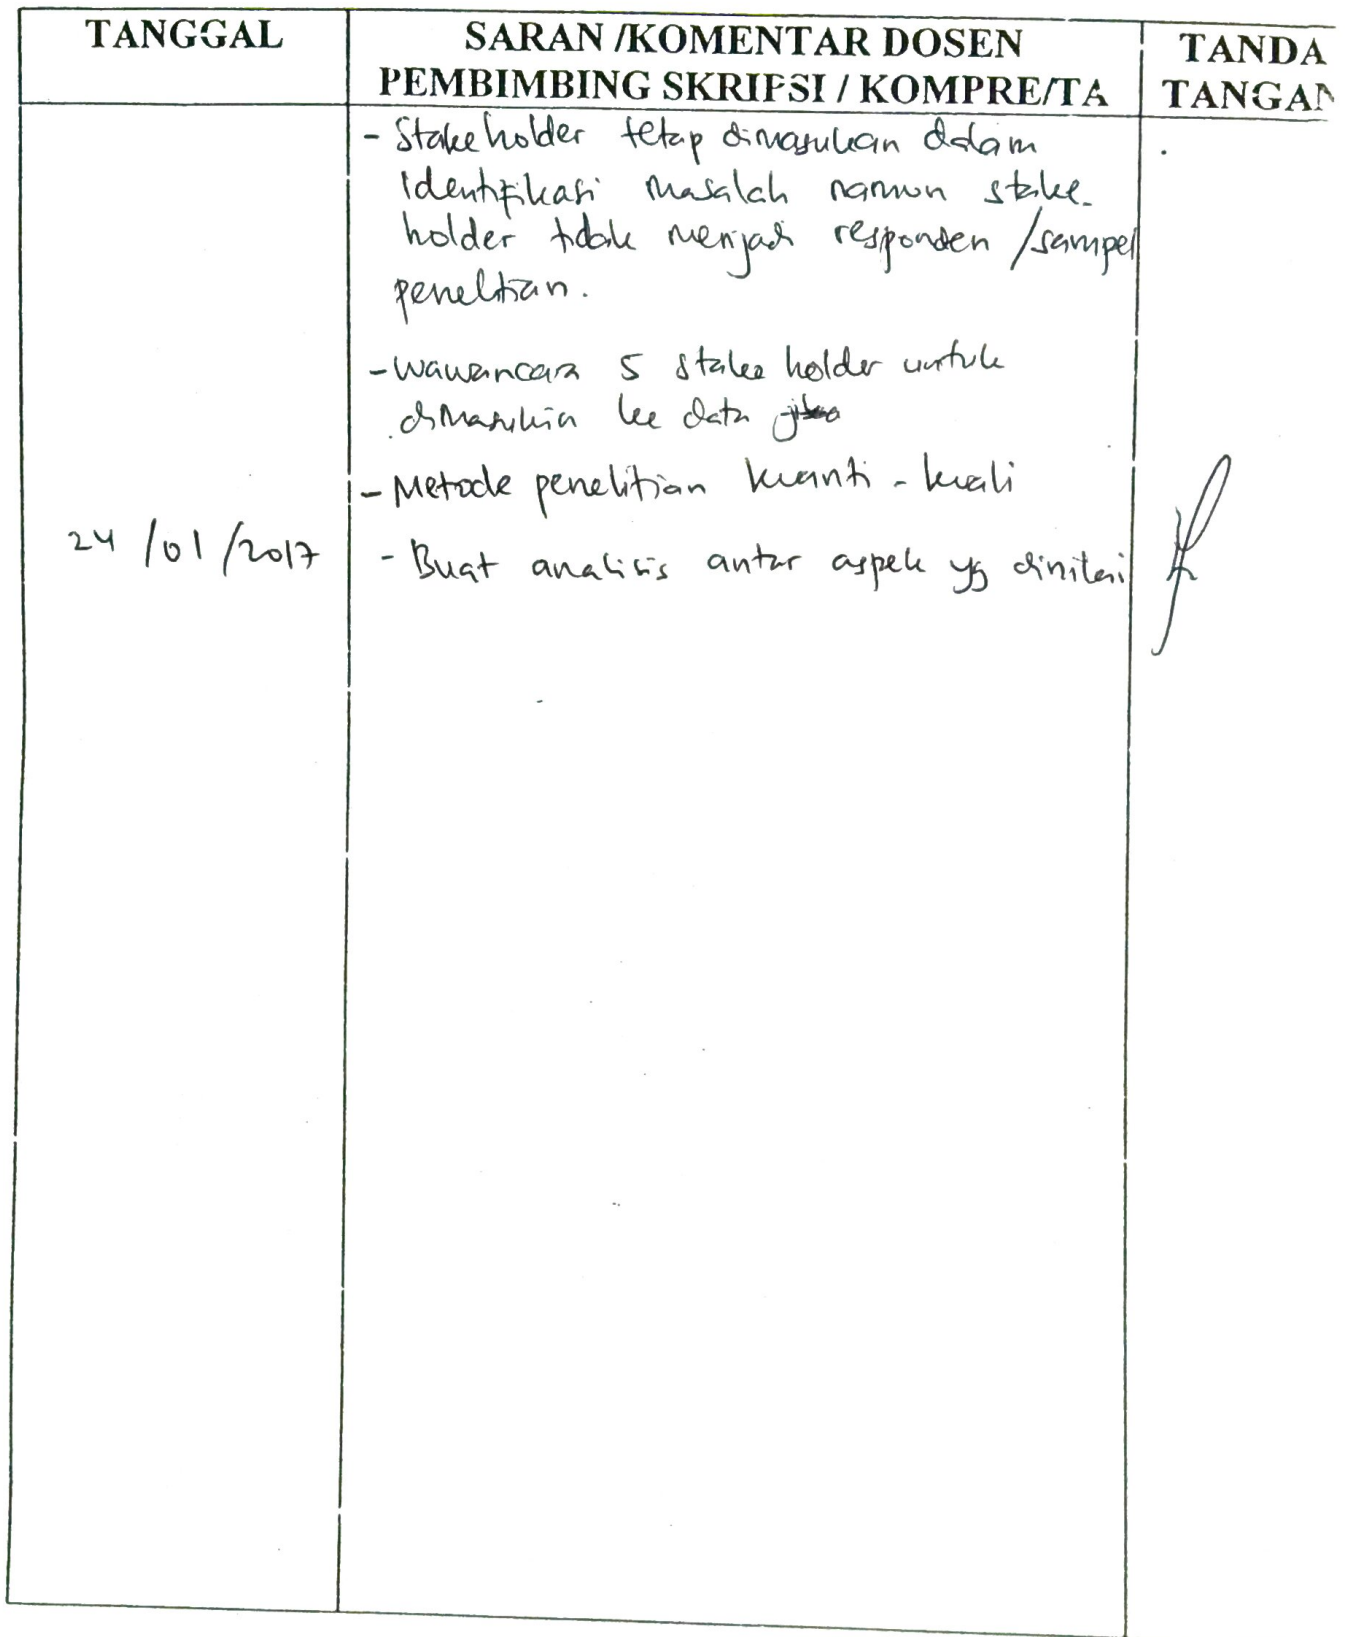 TANGGAL
SARAN /KOMENTAR DOSEN
PEMBIMBING SKRIPSI / KOMPRE/TA
TANDA
TANGAN
- Stakeholder tetap dimasukan dalam
Identifikasi masalah namun stake-
holder tidak menjadi responden /sampel
penelitian.
- Wawancara 5 stake holder untuk
dimasukin ke data
- Metode penelitian kuanti - kuali
24 /01 /2017
- Buat analisis antar aspek yg dinilai